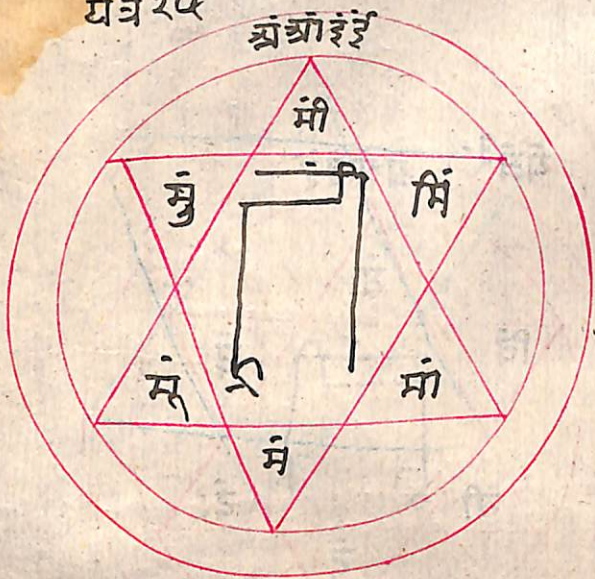 यंत्र २५
अं आं इं ईं
मीं
मुं
मिं
मूं
मां
मं